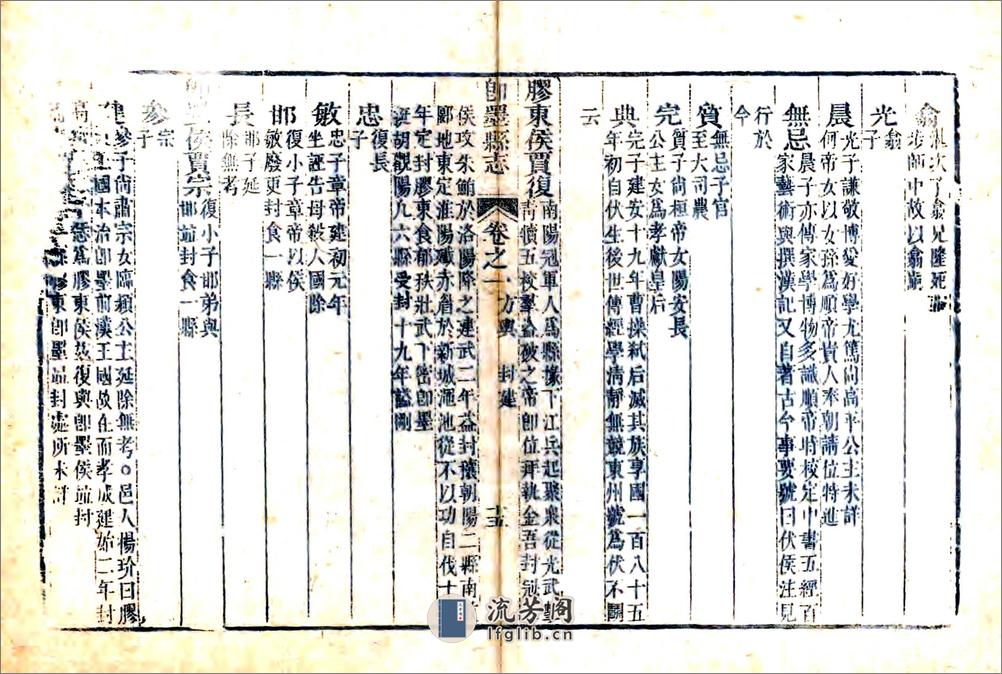 光翕子
晨光子謙敬博愛好學尤篤尚高平公主未詳
何帝女以女孫為順帝貴人奉朝請位特進
無忌晨子亦傳家學博物多識順帝時校定中書五經百
家藝術與撰漢記又自著古今事要號曰伏侯注見
行於今
質無忌子官
至大司農
完質子尚桓帝女陽安長
公主女為孝獻皇后
典完子建安十九年曹操弒后滅其族享國一百八十五
年初自伏生後世傳經學清靜無競東州號為伏不鬭
云
膠東侯賈復南陽冠軍人為縣掾下江兵起聚眾從光武擊
青犢五校羣盜破之帝即位拜執金吾封冠軍
即墨縣志 卷之一 方輿 封建 十五
侯攻朱鮪於洛陽降之建武二年益封穰朝陽二縣南
郾地東定淮陽殲赤眉於新城澠池從不以功自伐十
年定封膠東食郁秩壯武下密即墨
挺胡觀陽凡六縣受封十九年謚剛
忠復長子
敏忠子章帝建初元年
坐誣告母殺人國除
邯復小子章帝以侯
敏廢更封食一縣
長邯子延
除無考
侯賈宗復小子邯弟與
邯並封食一縣
參宗子
建參子尚肅宗女臨潁公主延除無考○邑人楊玠曰膠
國本治即墨前漢王國故在而孝成建始二年封
為膠東侯賈復與即墨侯並封
膠東即墨並封處所未詳